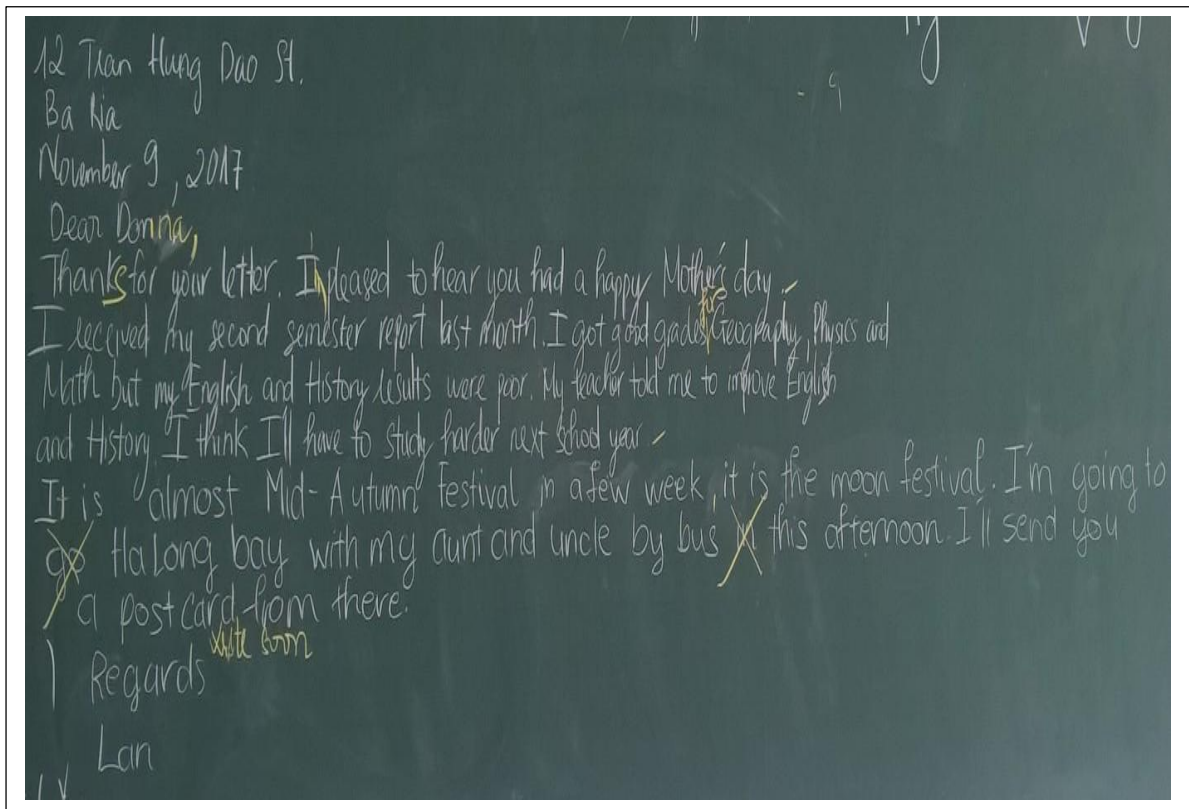 12 Tran Hung Dao St.
Ba Ria
November 9, 2017
Dear Donna,
Thanks for your letter. I'm pleased to hear you had a happy Mother's day.
I received my second semester report last month. I got good grades for Geography, Physics and
Math but my English and History results were poor. My teacher told me to improve English
and History. I think I'll have to study harder next school year
It is almost Mid-Autumn Festival in a few week, it is the moon festival. I'm going to
go Ha Long bay with my aunt and uncle by bus this afternoon. I'll send you
a postcard from there.
write soon
Regards
Lan